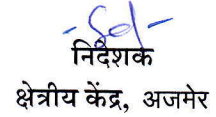 -Sd-
निदेशक
क्षेत्रीय केंद्र, अजमेर